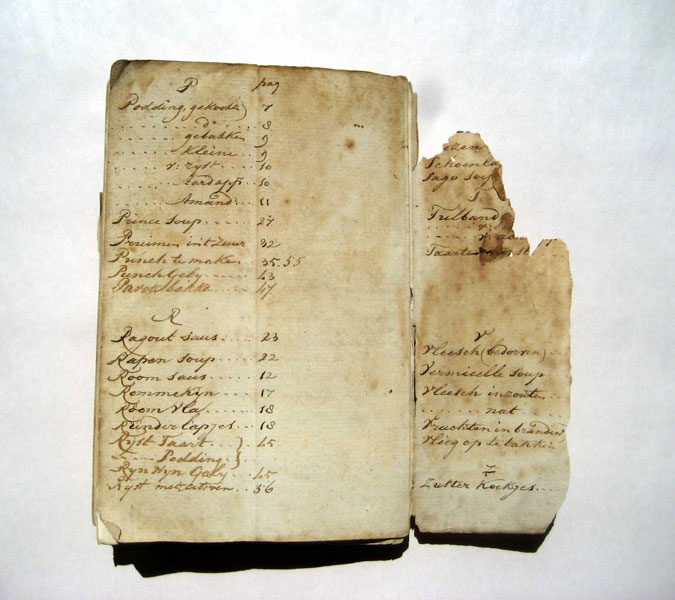 P pag
Podding, gekookte 7
do 8
gebakken 9
kleine 9
v: ryst 10
Aardapp 10
Amand 11
Prince soup 27
Pruimen in t zuur 32
Punch te maken 35.55
Punch Gely 43
47
R
Ragout saus 23
Rapen soup 22
Room saus 12
Rommekyn 17
Room Vla 18
Runder lapjes 18
Ryst Taart 45
Podding
Ryn Wyn Gely 45
Ryst met citroen 36
Schoenla
Sago soup
S
Tulband
Taart
V
Vleesch (bedorven)
Vermicelle soup
Vleesch in zouten
nat
Vruchten in branden
Vlieg op te bakken
Z
Zuster Koekjes